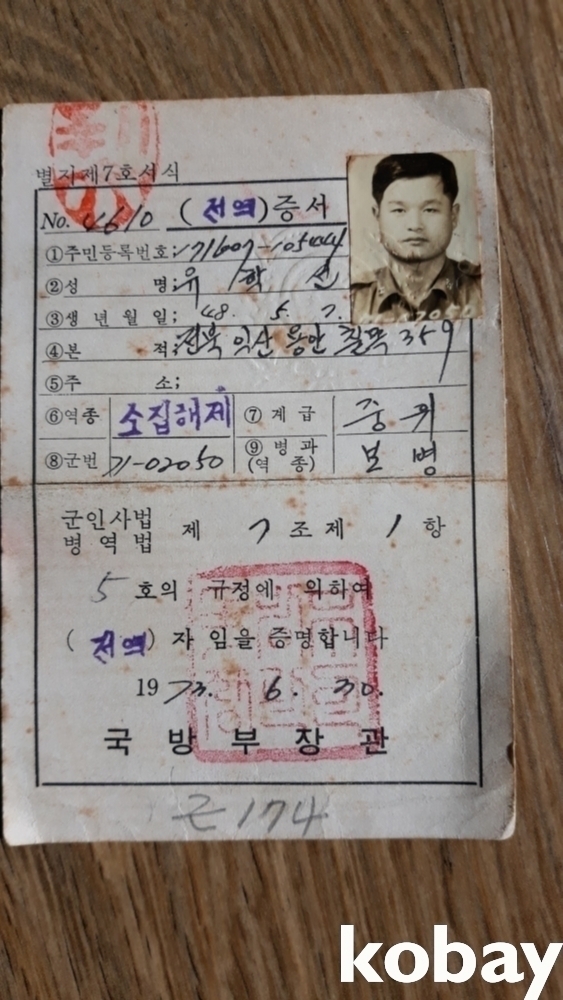 별지제7호서식
No. 4610 (전역)증서
①주민등록번호;
②성 명; 유 학 선
③생 년 월 일; 48. 5. 7.
④본 적; 전북 익산 용안 칠목 359
⑤주 소;
⑥역종 소집해제 ⑦계 급 중 위
⑧군번 71-02050 ⑨병과(역 종) 보 병
군인사법
병 역 법 제 7 조 제 1 항
5 호의 규정에 의하여
(전역) 자 임을 증명합니다
1973. 6. 30.
국 방 부 장 관
174
kobay